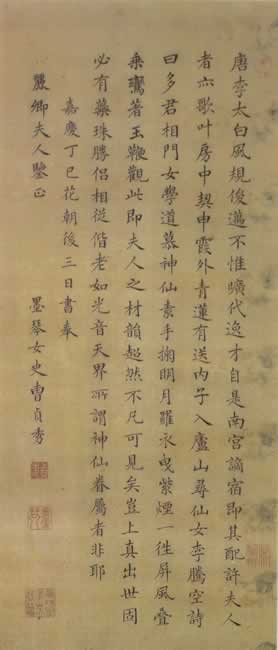 唐李太白風規俊邁不惟曠代逸才自是南宮謫宿即其配許夫人
者亦歌叶房中契申霞外青蓮有送内子入廬山尋仙女李騰空詩
曰多君相門女學道慕神仙素手掬明月羅衣曳紫煙一往屏風疊
乘鸞著玉鞭觀此即夫人之材韻超然不凡可見矣豈上真出世固
必有蘂珠勝侣相從偕老如光音天界所謂神仙眷屬者非耶
嘉慶丁巳花朝後三日書奉
麗卿夫人鑒正
墨琴女史曹貞秀